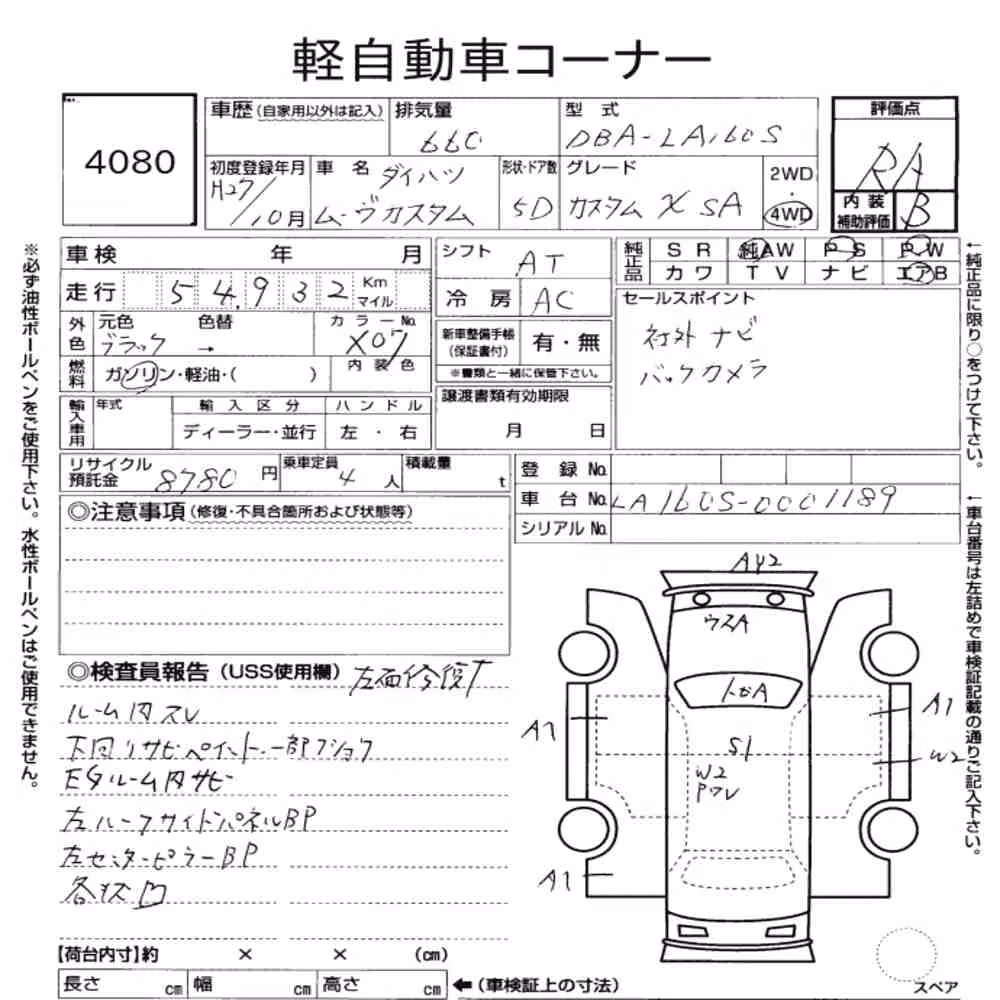 軽自動車コーナー
4080
車歴 (自家用以外は記入)
排気量
660
型 式
DBA-LA160S
評価点
RA
初度登録年月
H27/10月
車 名
ダイハツ
ムーヴカスタム
形状・ドア数
5D
グレード
カスタム X SA
2WD
・
4WD
内 装
補助評価
B
※必ず油性ボールペンをご使用下さい。水性ボールペンはご使用できません。
車検 年 月
シフト
AT
純正品
SR 純AW PS PW
カワ TV ナビ エアB
走行 54,932 Km
マイル
冷 房 AC
セールスポイント
社外 ナビ
バックカメラ
外色
元色 色替
ブラック →
カラーNo.
X07
新車整備手帳
(保証書付)
有・無
※書類と一緒に保管下さい。
燃料
ガソリン・軽油・( )
内 装 色
譲渡書類有効期限
月 日
輸入車用
年式
輸 入 区 分
ハ ン ド ル
ディーラー・並行
左 ・ 右
←純正品に限り○をつけて下さい。
リサイクル
預託金
8780 円
乗車定員
4 人
積載量
t
登 録 No.
車 台 No. LA160S-0001189
シリアル No.
←車台番号は左詰めで車検証記載の通りご記入下さい。
◎注意事項 (修復・不具合箇所および状態等)
◎検査員報告 (USS使用欄) 左面修復す
ルーム内スレ
下回りサビペイント.一部フショク
Eタルーム内サビ
左ルーフサイドパネルBP
左センターピラーBP
各状凹
AY2
ウスA
トビA
A1
A1
S1
W2
W2
Pワレ
A1
【荷台内寸】約 × × (cm)
長さ cm 幅 cm 高さ cm
←(車検証上の寸法)
スペア